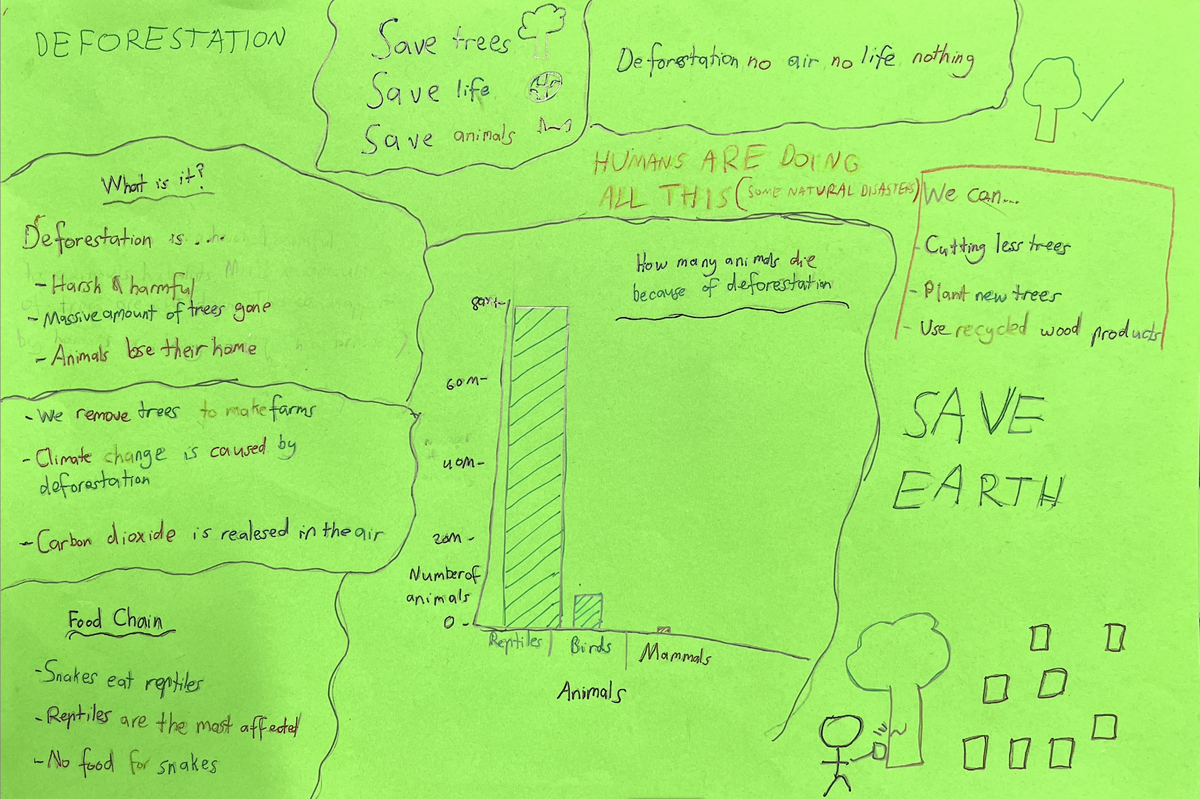 DEFORESTATION
Save trees
Save life
Save animals
Deforestation no air no life nothing
HUMANS ARE DOING
ALL THIS (SOME NATURAL DISASTERS)
What is it?
Deforestation is ....
- Harsh & harmful
- Massive amount of trees gone
- Animals lose their home
- We remove trees to make farms
- Climate change is caused by
deforestation
- Carbon dioxide is realesed in the air
Food Chain
- Snakes eat reptiles
- Reptiles are the most affected
- No food for snakes
How many animals die
because of deforestation
60m-
40m-
20m-
Number of
animals
0-
Reptiles
Birds
Mammals
Animals
We can...
- Cutting less trees
- Plant new trees
- Use recycled wood products
SAVE
EARTH